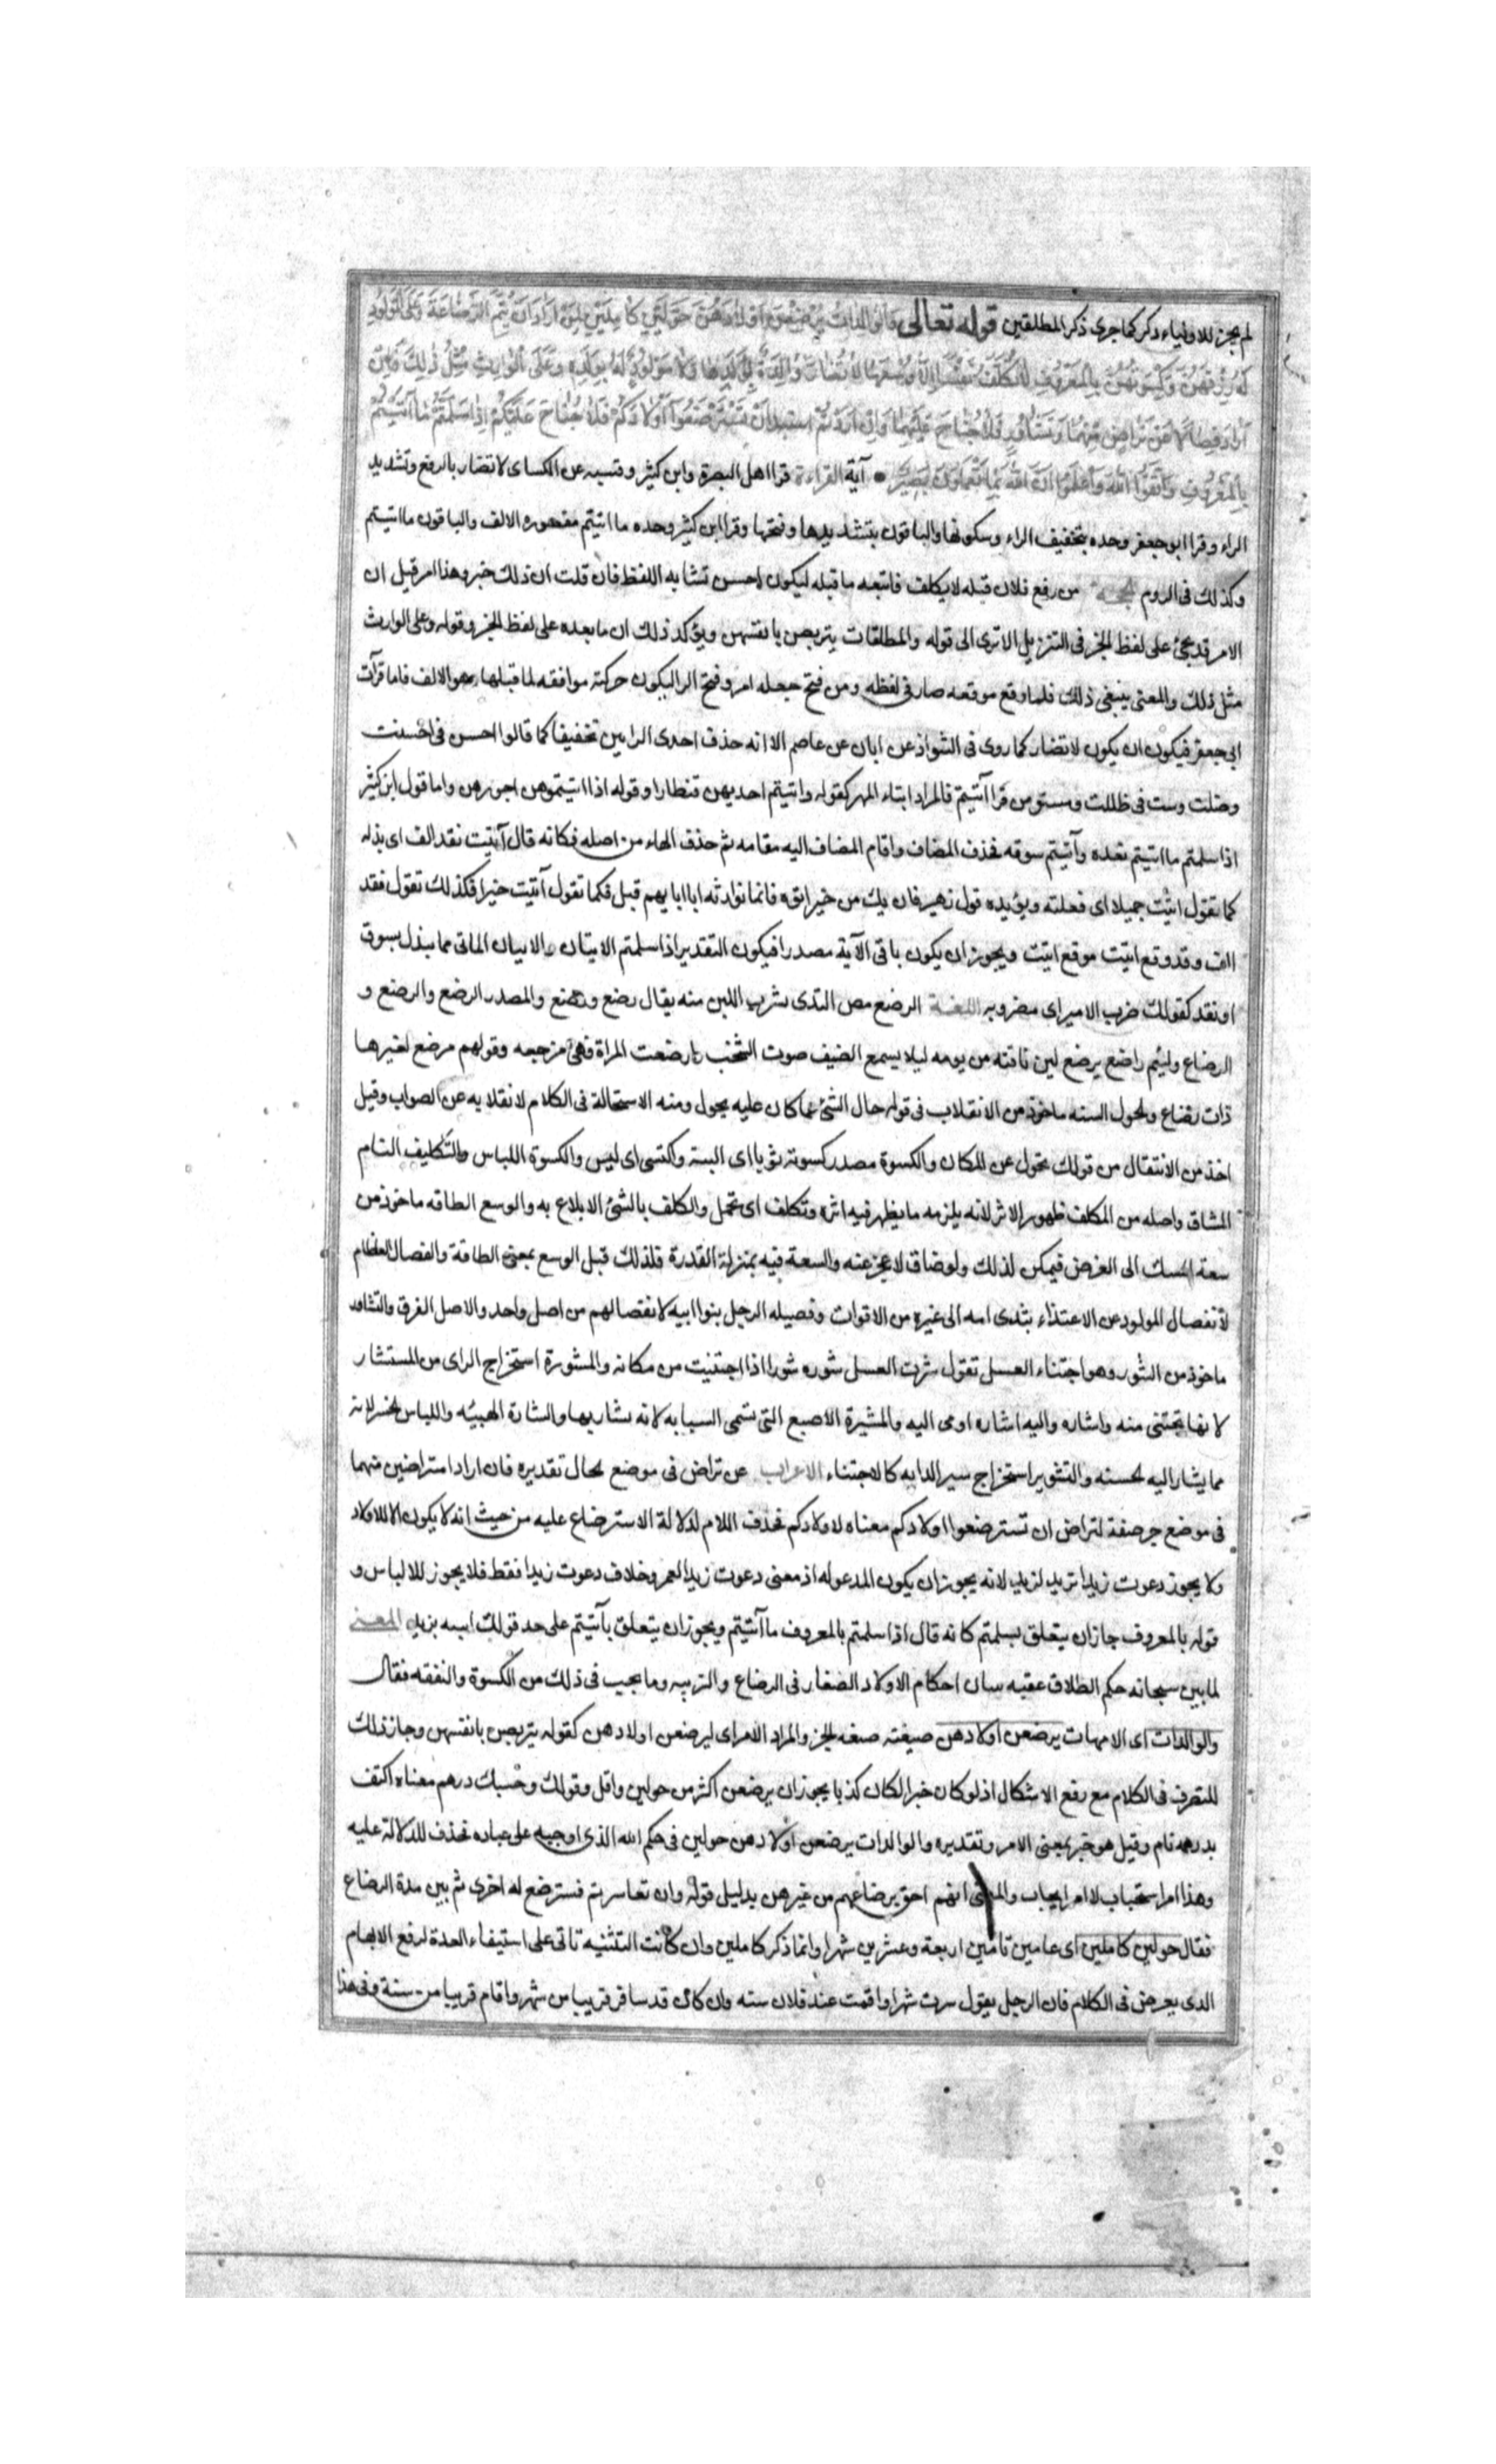 لم يجز للاولياء ذكر كما جرى ذكر المطلقين قوله تعالى والوالدات يرضعن اولادهن حولين كاملين لمن اراد ان يتم الرضاعة وعلى المولود
له رزقهن وكسوتهن بالمعروف لا تكلف نفس الا وسعها لا تضار والدة بولدها ولا مولود له بولده وعلى الوارث مثل ذلك فان
ارادا فصالا عن تراض منهما وتشاور فلا جناح عليهما وان اردتم ان تسترضعوا اولادكم فلا جناح عليكم اذا سلمتم ما آتيتم
بالمعروف واتقوا الله واعلموا ان الله بما تعملون بصير آية القراءة قرا اهل البصرة وابن كثير وقتيبه عن الكساى لا تضار بالرفع وتشديد
الراء وقرا ابو جعفر وحده بتخفيف الراء وسكونها والباقون بتشديدها وفتحها وقرا ابن كثير وحده ما اتيتم مقصوره الالف والباقون ما آتيتم
وكذلك فى الروم الحجة من رفع فلان قبله لا يكلف فاتبعه ما قبله ليكون احسن تشابه اللفظ فان قلت ان ذلك خبر وهذا امر قيل ان
الامر قد يجئ على لفظ الخبر فى التنزيل الا ترى الى قوله والمطلقات يتربصن بانفسهن ويؤكد ذلك ان ما بعده على لفظ الخبر وقوله وعلى الوارث
مثل ذلك والمعنى ينبغى ذلك فلما وقع موقعه صار فى لفظه ومن فتح جعله امر وفتح الرا ليكون حركته موافقه لما قبلها وهو الالف فاما قرآت
ابى جعفر فيكون ان يكون لا تضار كما روى فى الشواذ عن ابان عن عاصم الا انه حذف احدى الرايين تخفيفا كما قالوا احسن فى احسنت
وظلت وست فى ظللت ومسست ومن قرا آتيتم فالمراد ايتاء المهر كقوله واتيتم احديهن قنطارا وقوله اذا اتيتموهن اجورهن واما قول ابن كثير
اذا سلمتم ما اتيتم نقده وآتيتم سوقه فحذف المضاف واقام المضاف اليه مقامه ثم حذف الهاء من اصله فكانه قال آتيت نقد الف اى بذله
كما تقول اتيت جميلا اى فعلته ويؤيده قول زهير فان يك من خير اتوه فانما توارثه ابا ابايهم قبل فكما تقول آتيت خيرا فكذلك تقول نقد
الف وقد وقع اتيت موقع آتيت ويجوز ان يكون باقى الآية مصدرا فيكون التقدير اذا سلمتم الاتيان والاتيان الماتى مما يبذل بسوق
او نقد كقولك ضرب الامير اى مضروبه اللغة الرضع مص الثدى بشرب اللبن منه يقال رضع ورضع والمصدر الرضع والرضع و
الرضاع ولئيم راضع يرضع لبن ناقته من يومه ليلا يسمع الضيف صوت الشخب وارضعت المراة فهى مرضعه وقولهم مرضع لغيرها
ذات رضاع والحول السنه ماخوذ من الانقلاب فى قوله حال الشئ عما كان عليه يحول ومنه الاستحالة فى الكلام لانقلابه عن الصواب وقيل
اخذ من الانتقال من قولك تحول عن المكان والكسوة مصدر كسوته ثوبا اى البسته واكتسى اى لبس والكسوة اللباس والتكليف التام
المشاق واصله من المكلف ظهور الاثر لانه يلزمه ما يظهر فيه اثره وتكلف اى تحمل والكلف بالشئ الابلاع به والوسع الطاقه ماخوذ من
سعة المسلك الى الغرض فيمكن لذلك ولو ضاق لاعجز عنه والسعة فيه بمنزلة القدرة فلذلك قيل الوسع بمعنى الطاقة والفصال الفطام
لانفصال المولود عن الاغتذاء بثدى امه الى غيره من الاقوات وفصيله الرجل بنوا ابيه لانفصالهم من اصل واحد والاصل الفرق والتشاور
ماخوذ من الشور وهو اجتناء العسل تقول شرت العسل شوره شورا اذا اجتنيت من مكانه والمشورة استخراج الراى من المستشار
لانها تجتنى منه واشاره واليه اشاره اومى اليه والمشيرة الاصبع التى تسمى السبابه لانه يشار بها والشارة الهيئه واللباس الحسن لانه
مما يشار اليه لحسنه والتشوير استخراج سير الدابه كالاجتناء الاعراب عن تراض فى موضع الحال تقديره فان ارادا متراضين منهما
فى موضع جر صفة لتراض ان تسترضعوا اولادكم معناه لاولادكم فحذف اللام لدلالة الاسترضاع عليه من حيث انه لا يكون الا للاولاد
ولا يجوز دعوت زيدا تريد لزيد لانه يجوز ان يكون المدعو له اذ معنى دعوت زيدا لعمرو خلاف دعوت زيدا فقط فلا يجوز للالباس و
قوله بالمعروف جاز ان يتعلق بسلمتم كانه قال اذا سلمتم بالمعروف ما آتيتم ويجوز ان يتعلق بآتيتم على حد قولك اتيته بزيد المعنى
لما بين سبحانه حكم الطلاق عقبه ببيان احكام الاولاد الصغار فى الرضاع والتربيه وما يجب فى ذلك من الكسوة والنفقه فقال
والوالدات اى الامهات يرضعن اولادهن صيغته صيغه الخبر والمراد الامر اى ليرضعن اولادهن كقوله يتربصن بانفسهن وجاز ذلك
للتصرف فى الكلام مع رفع الاشكال اذ لو كان خبرا لكان كذبا يجوز ان يرضعن اكثر من حولين واقل وقولك وحسبك درهم معناه اكتف
بدرهم تام وقيل هو خبر بمعنى الامر وتقديره والوالدات يرضعن اولادهن حولين فى حكم الله الذى اوجبه على عباده فحذف للدلالة عليه
وهذا امر استحباب لا امر ايجاب والمعنى انهم احق برضاعهم من غيرهن بدليل قوله وان تعاسرتم فسترضع له اخرى ثم بين مدة الرضاع
فقال حولين كاملين اى عامين تامين اربعة وعشرين شهرا وانما ذكر كاملين وان كانت التثنيه تاتى على استيفاء العدة لرفع الابهام
الذى يعرض فى الكلام فان الرجل يقول سرت شهرا واقمت عند فلان سنه وان كان قد سافر قريبا من شهر واقام قريبا من سنة وفى هذا